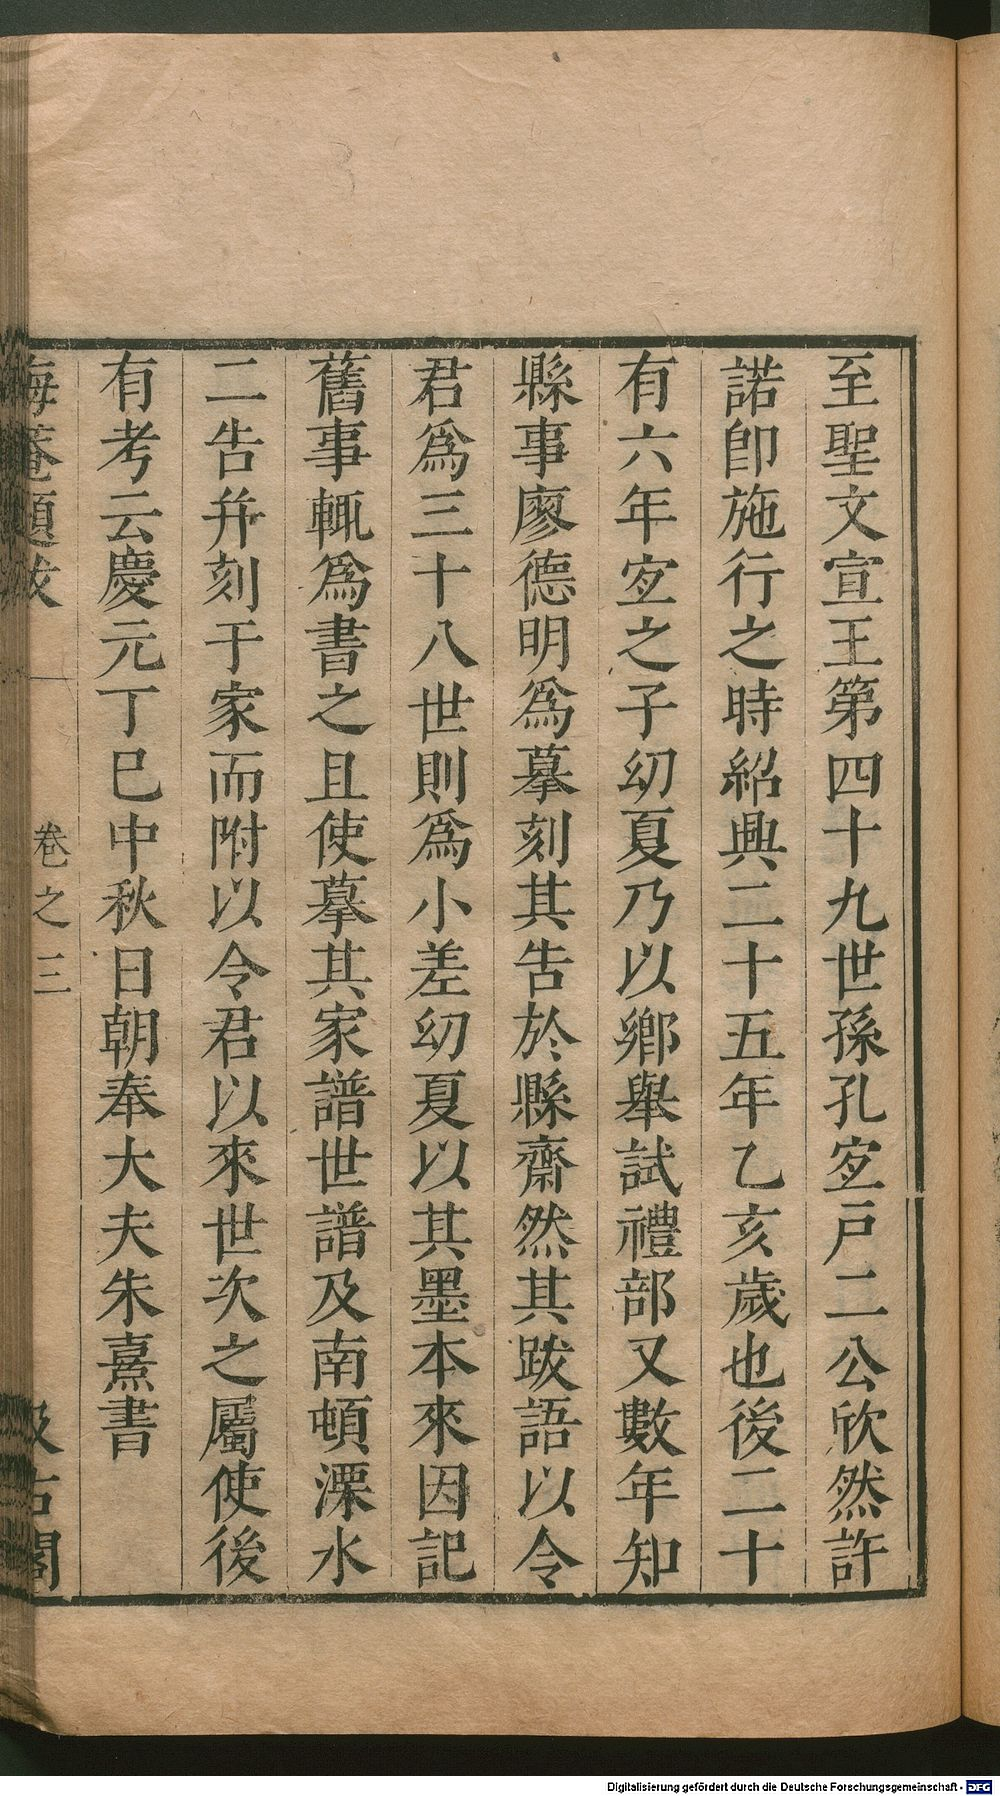 至聖文宣王第四十九世孫孔㝎戸二公欣然許
諾卽施行之時紹興二十五年乙亥歲也後二十
有六年㝎之子幼夏乃以鄉舉試禮部又數年知
縣事廖德明爲摹刻其告於縣齋然其跋語以令
君爲三十八世則爲小差幼夏以其墨本來因記
舊事輒爲書之且使摹其家譜世譜及南頓溧水
二告幷刻于家而附以令君以來世次之屬使後
有考云慶元丁巳中秋日朝奉大夫朱熹書
海菴題跋 卷之三 汲古閣
Digitalisierung gefördert durch die Deutsche Forschungsgemeinschaft - DFG